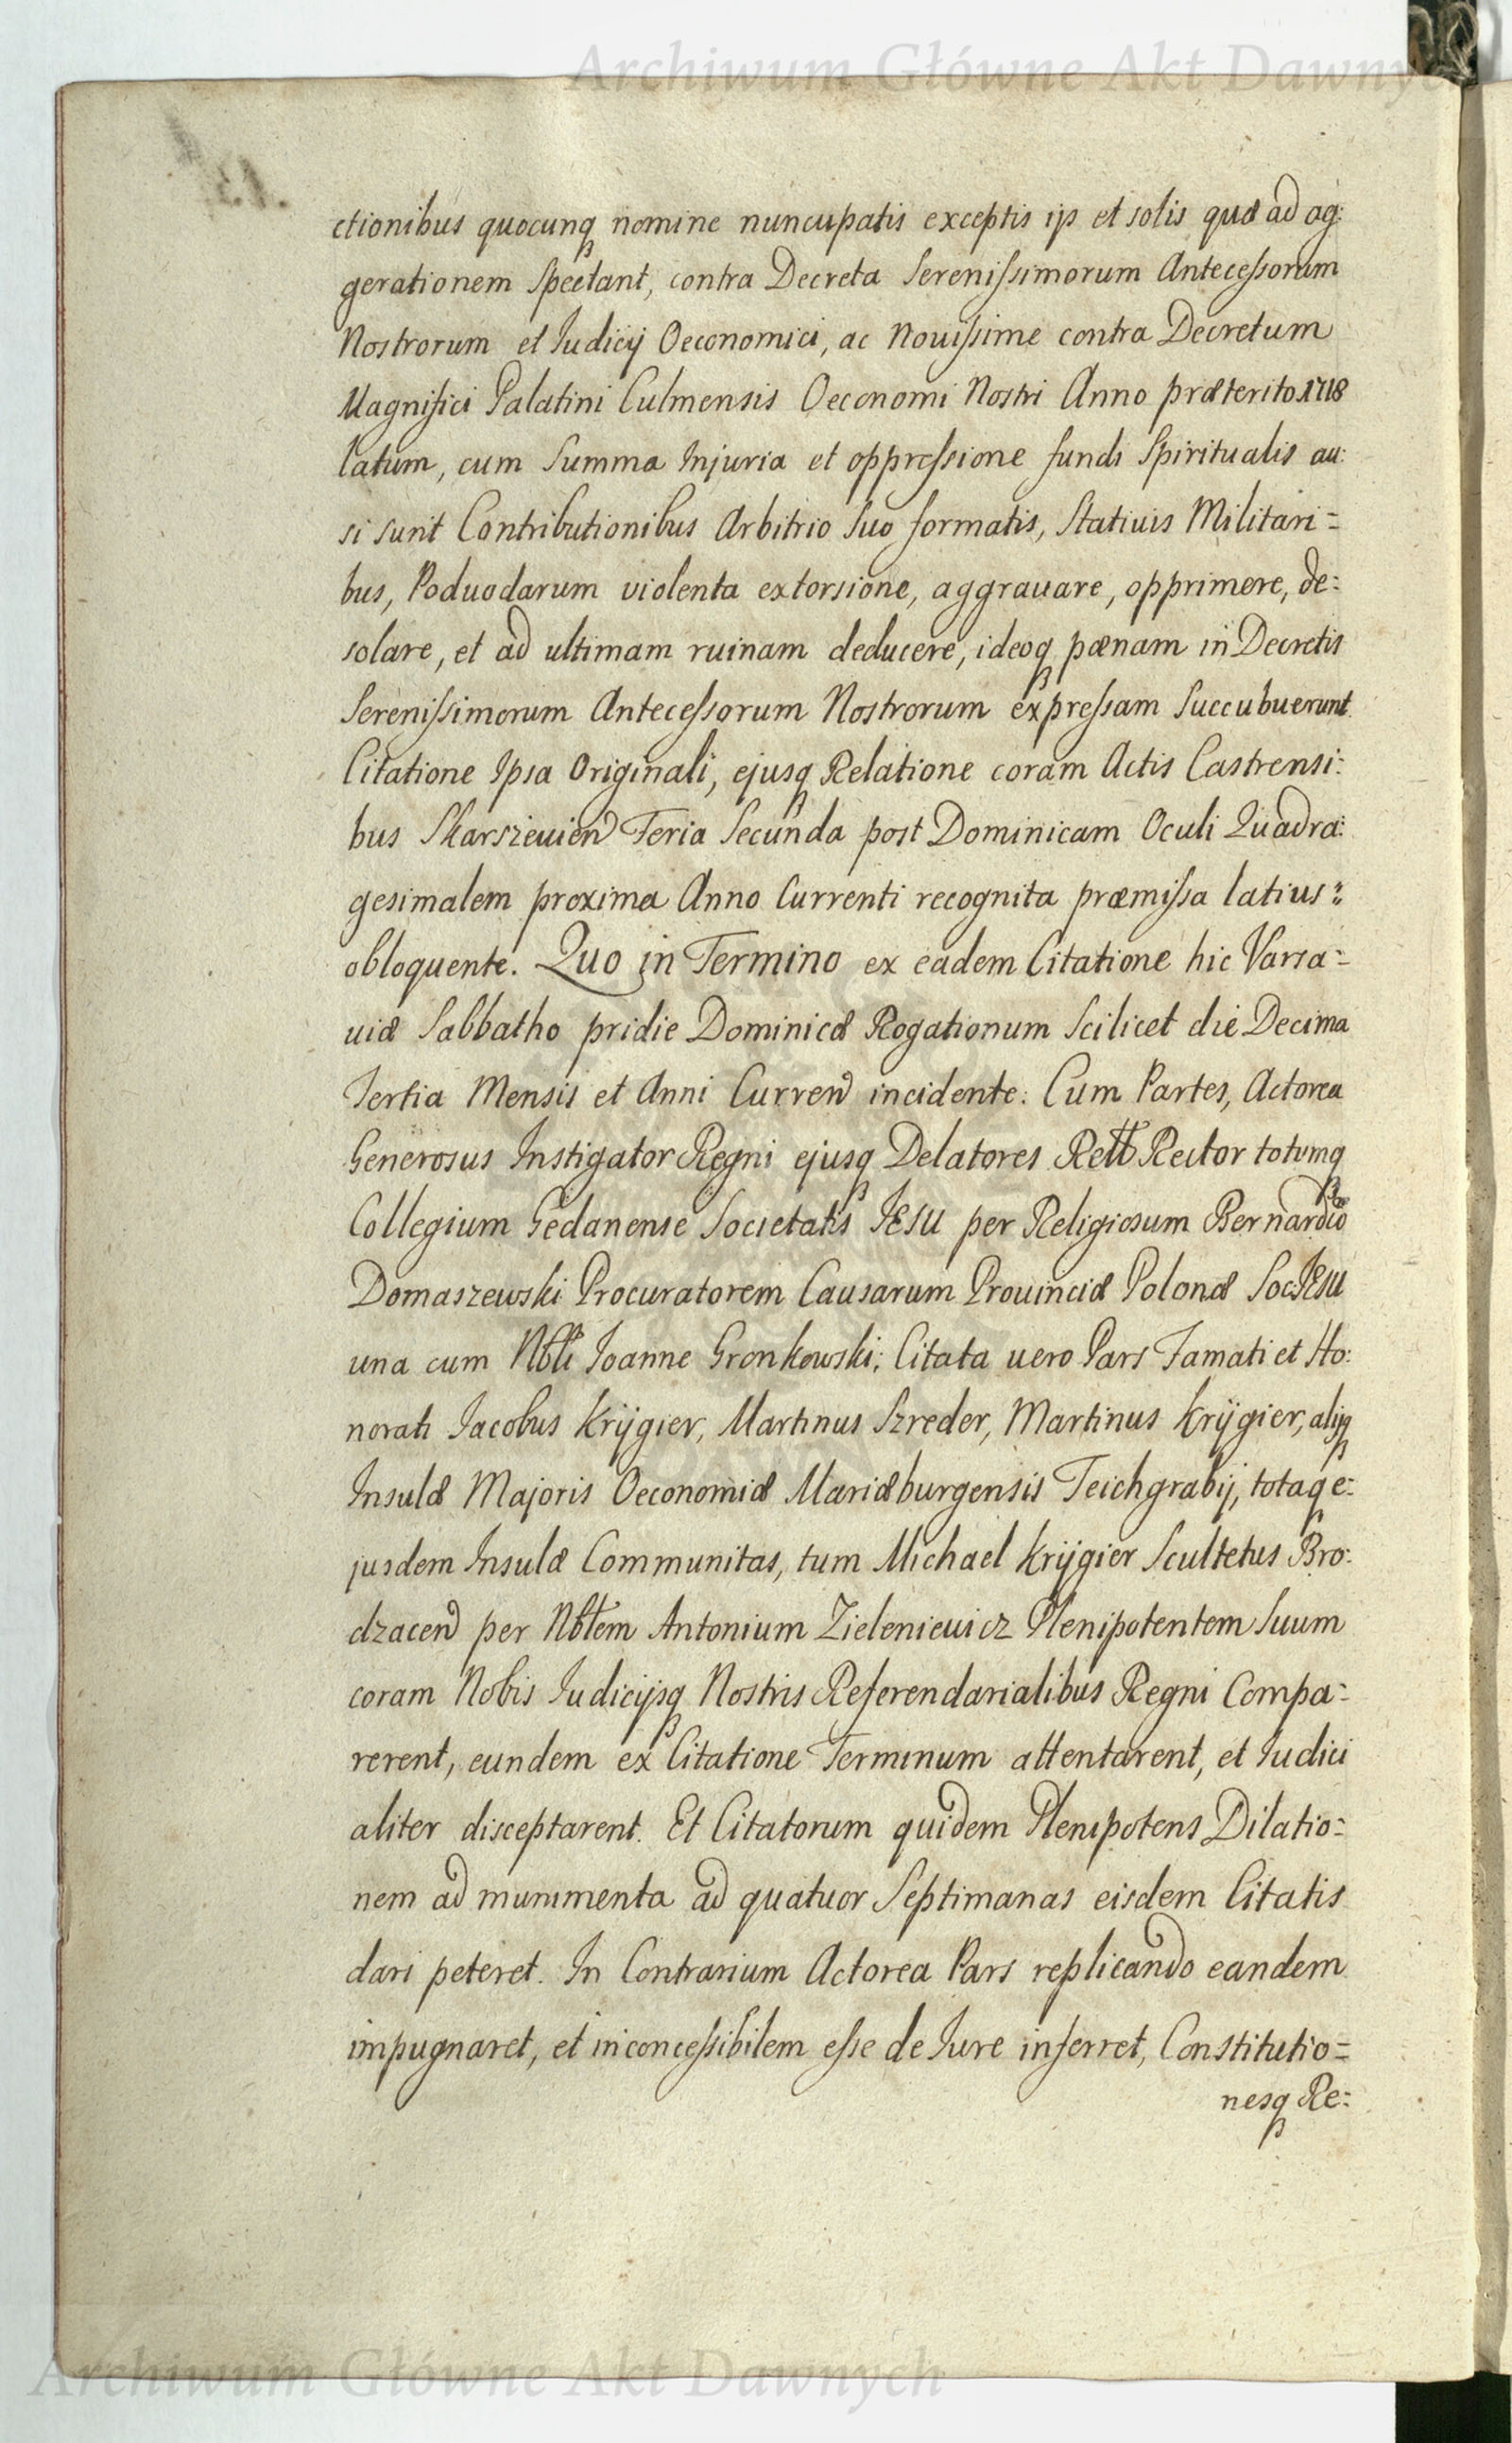 Archiwum Główne Akt Dawnych
ctionibus quocunq nomine nuncupatis exceptis ijs et solis quæ ad ag:
gerationem Spectant, contra Decreta Serenissimorum Antecessorum
Nostrorum et Judicij Oeconomici, ac Nouissime contra Decretum
Magnifici Palatini Culmensis Oeconomi Nostri Anno præterito 1718
latum, cum Summa Injuria et oppressione fundi Spiritualis au:
si sunt Contributionibus Arbitrio Suo formatis, Statiuis Militari=
bus, Poduodarum violenta extorsione, aggrauare, opprimere, de:
solare, et ad ultimam ruinam deducere, ideoq pœnam in Decretis
Serenissimorum Antecessorum Nostrorum expressam Succubuerunt.
Citatione Ipsa Originali, ejusq Relatione coram Actis Castrensi:
bus Skarszeuien Feria Secunda post Dominicam Oculi Quadra:
gesimalem proxima Anno Currenti recognita præmissa latius:
obloquente. Quo in Termino ex eadem Citatione hic Varsa=
uiæ Sabbatho pridie Dominicæ Rogationum Scilicet die Decima
Tertia Mensis et Anni Curren incidente. Cum Partes, Actorea
Generosus Instigator Regni ejusq Delatores Rett Rector totumq
Collegium Gedanense Societatis JESU per Religiosum Bernardū
Domaszewski Procuratorem Causarum Prouinciæ Polonæ Soc JESU
una cum Nbli Joanne Gronkowski; Citata uero Pars Famati et Ho:
norati Jacobus Krÿgier, Martinus Szreder, Martinus Krÿgier, alijq
Insulæ Majoris Oeconomiæ Mariæburgensis Teichgrabij, totaq e:
jusdem Insulæ Communitas, tum Michael Krÿgier Scultetus Bro:
dzacen per Nblem Antonium Zieleniewicz Plenipotentem Suum
coram Nobis Judicijsq Nostris Referendarialibus Regni Compa=
rerent, eundem ex Citatione Terminum attentarent, et Judici
aliter disceptarent. Et Citatorum quidem Plenipotens Dilatio=
nem ad munimenta ad quatuor Septimanas eisdem Citatis
dari peteret. In Contrarium Actorea Pars replicando eandem
impugnaret, et inconcessibilem esse de Jure inferret, Constitutio=
nesq Re:
Archiwum Główne Akt Dawnych